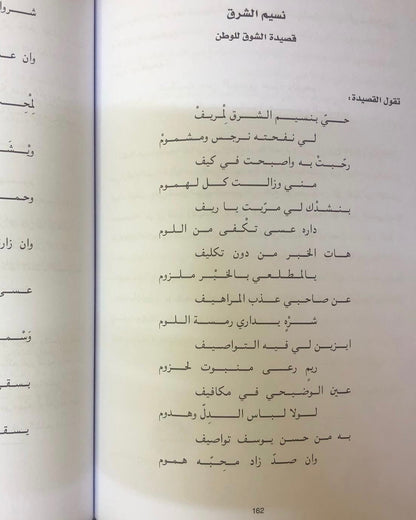 نسيم الشرق
قصيدة الشوق للوطن
تقول القصيدة:
حيّ بنسيم الشرق لْمريفْ
لي نفحته نرجس ومشمومْ
رحّبتْ به واصبحت في كيف
مني وزالت كل لهموم
بنشدك لي مرّيت با ريف
داره عسى تكْفى من اللوم
هات الخبر من دون تكليف
يالمطلعي بالخبْر ملزوم
عن صاحبي عذب المراهيف
شرْهٍ يداري رمسة اللوم
ايزين لي فيه التواصيف
ريمٍ رعى منبوت لحزوم
عين الوضيحي في مكافيف
لولا لباس الدِلّ وهدوم
به من حسن يوسف تواصيف
وان صدّ زاد محِبّه هموم
182
شروا
وان عـ
لِمْحِـ
ويْشَـ
وحمـ
وان زار
عسـى
وَسْمـ
بسقـ
يسقـ